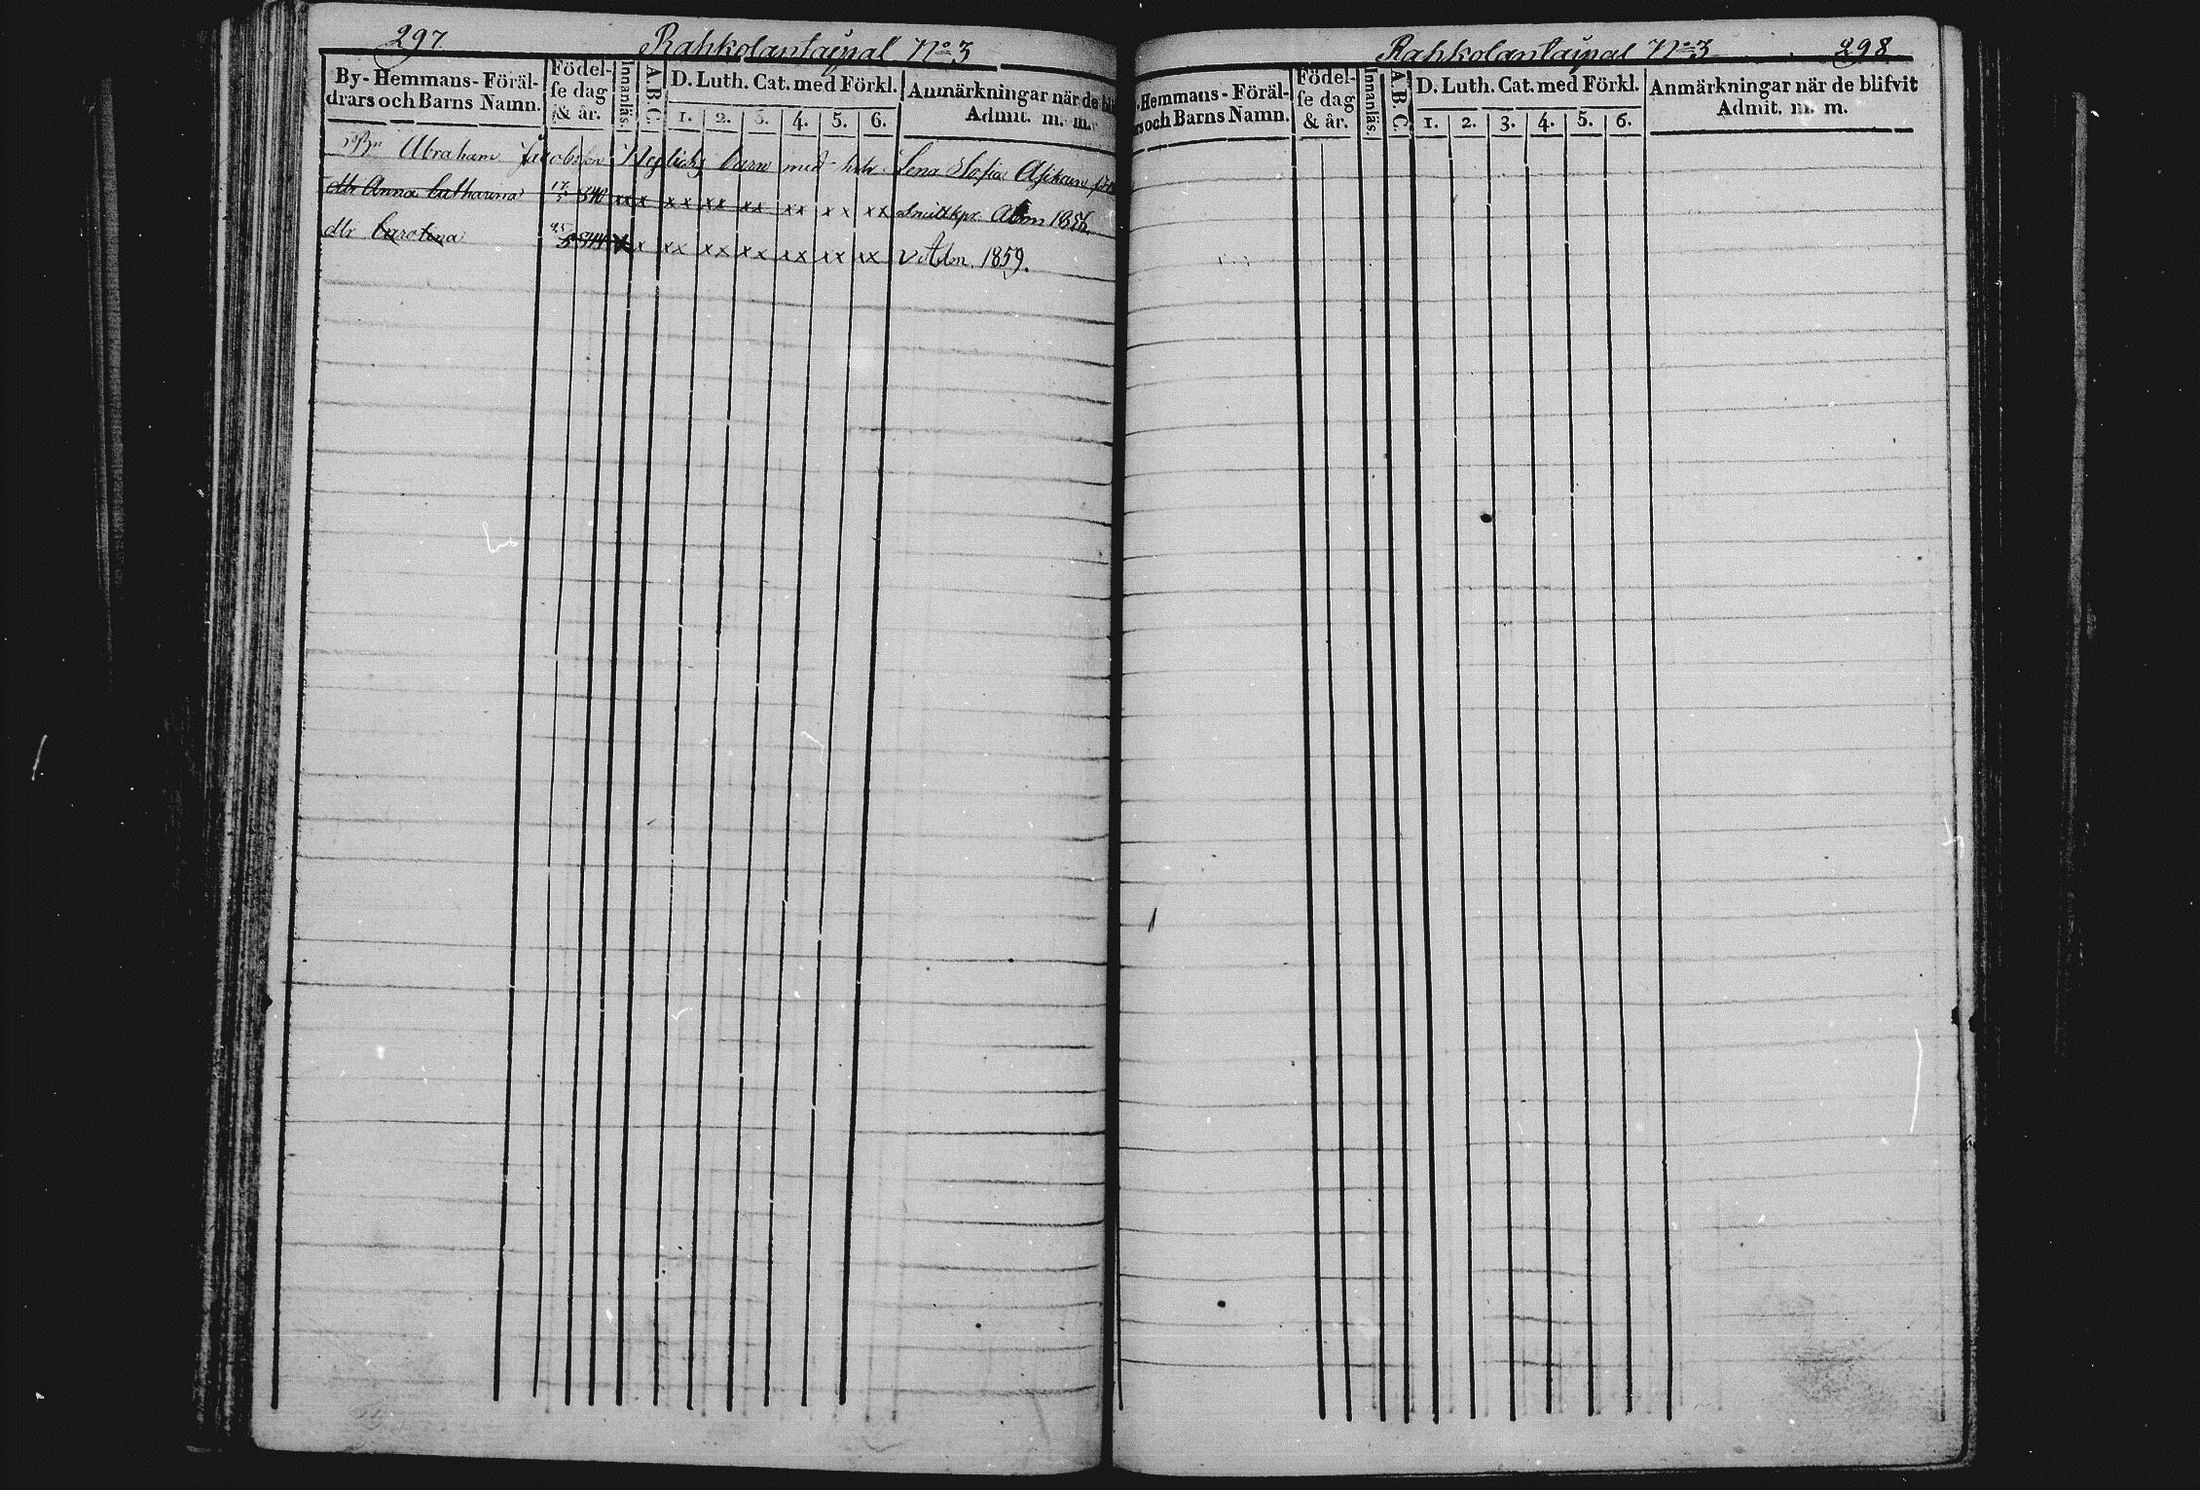 297 Rahkolantaipal No 3
By- Hemmans- Föräl-
drars och Barns Namn.
Födel-
se dag
& år.
Innanläs.
A.B.C.
D. Luth. Cat. med Förkl.
1. 2. 3. 4. 5. 6.
Anmärkningar när de bli
Admit. m. m.
Abraham Jacobsson barn med Lena Sofia
dtr Anna Catharina 17/5 840 xx xx xx xx xx xx xx Adm 1856.
dtr Carolina x x xx xx xx xx xx xx v. Adm. 1859.
Rahkolantaipal No 3 298
Hemmans- Föräl-
rs och Barns Namn.
Födel-
se dag
& år.
Innanläs.
A.B.C.
D. Luth. Cat. med Förkl.
1. 2. 3. 4. 5. 6.
Anmärkningar när de blifvit
Admit. m. m.